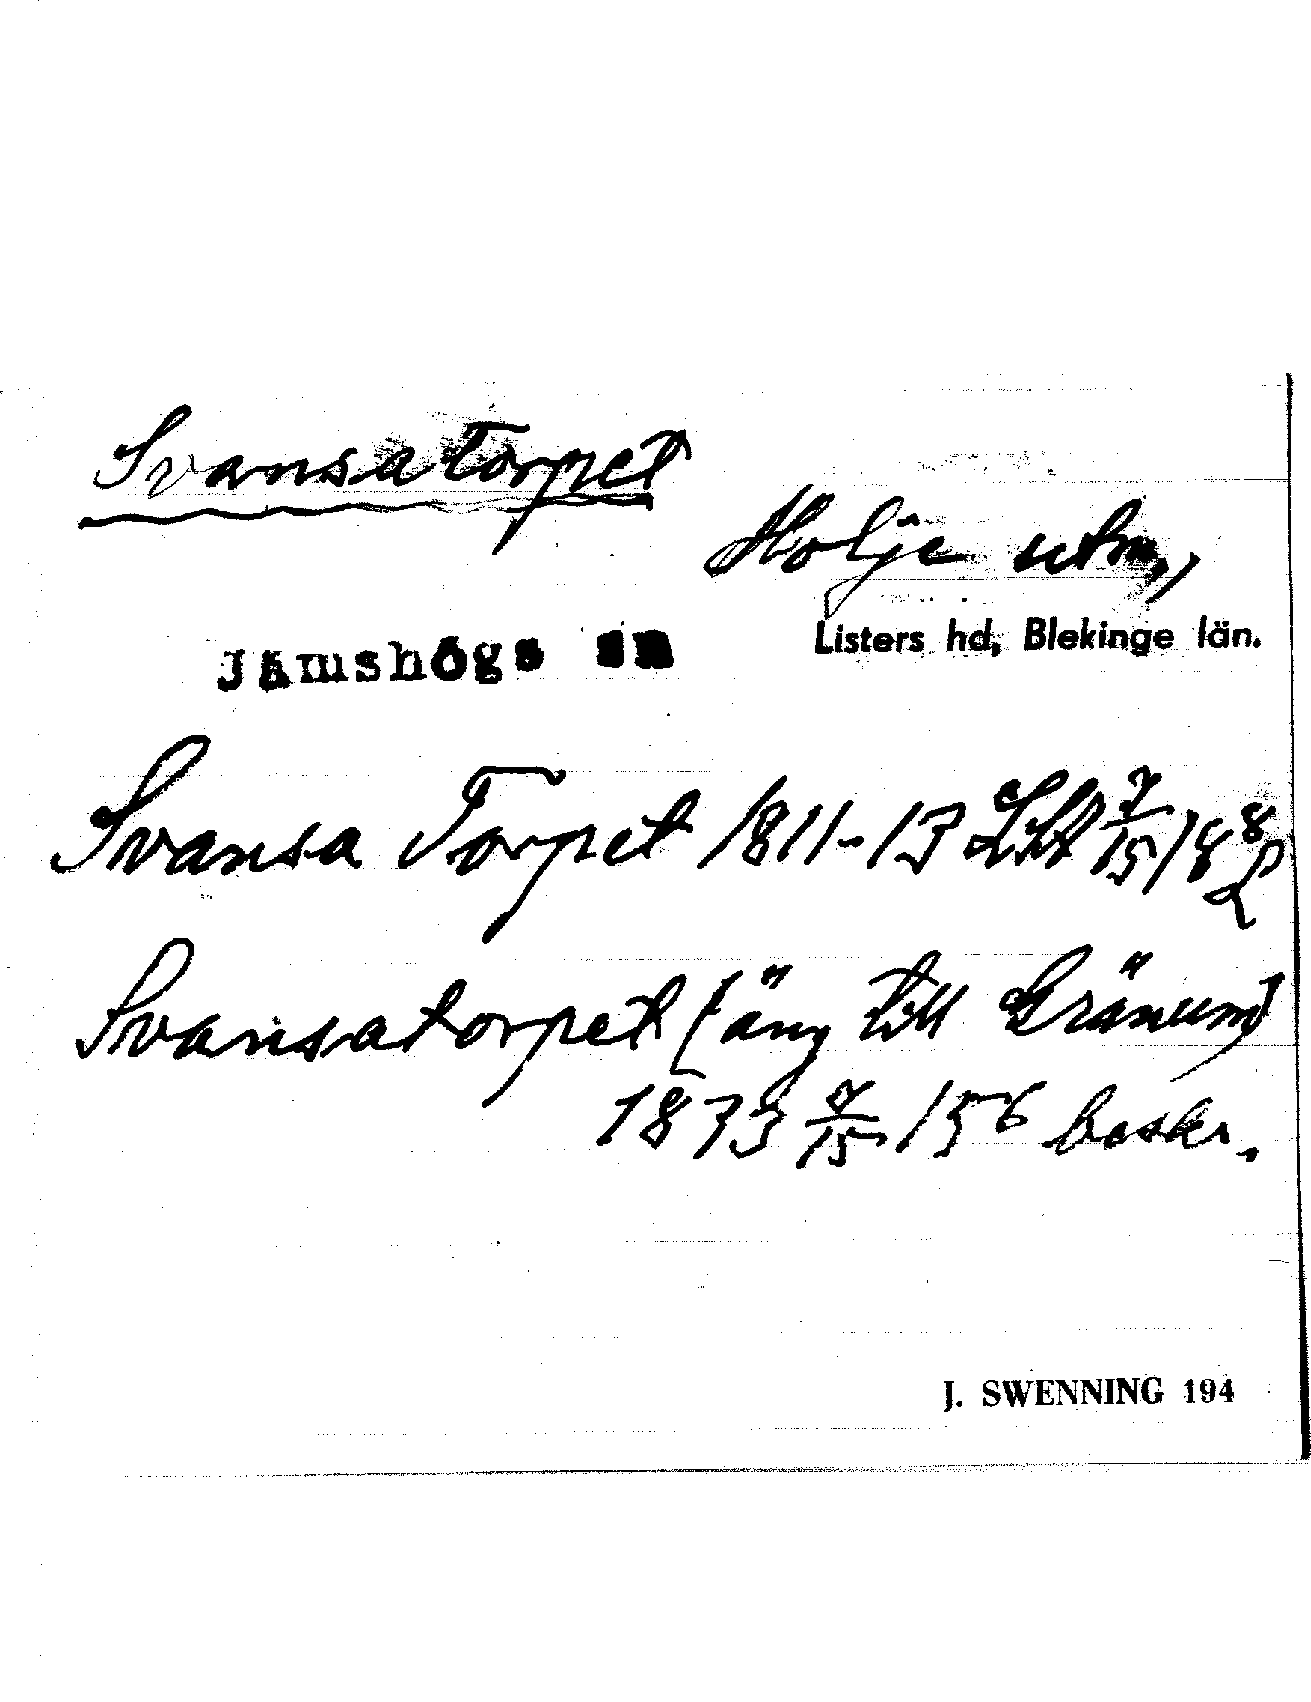 Svansatorpet
Holje utm,
Jämshögs sn
Listers hd, Blekinge län.
Svansa Torpet 1811-13 LSk 7/15 188
Svansatorpet (äng till Gränum)
1873 7/15 156 beskr.
J. SWENNING 194